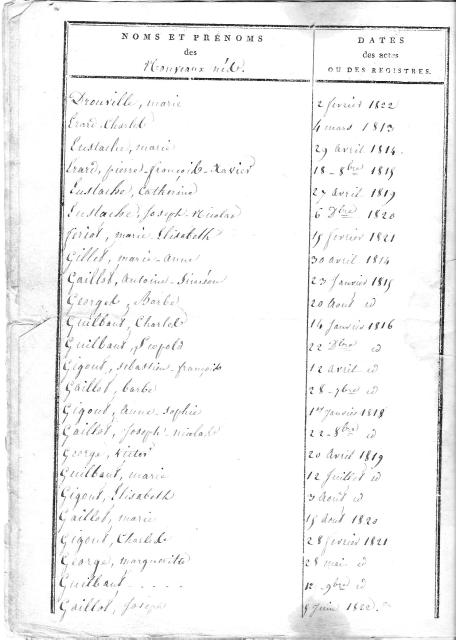 NOMS ET PRÉNOMS
des
Nouveaux nés.
DATES
des actes
OU DES REGISTRES.
Drouville, marie 2 février 1822
Erard, Charles 4 mars 1813
Eustache, marie 29 avril 1814.
Erard, pierre-françois-Xavier 18-8bre 1815
Eustache, Catherine 27 avril 1819
Eustache, Joseph-Nicolas 6 Dbre 1820
feriot, marie Elisabeth 15 février 1821
Gillot, marie-Anne 30 avril 1814
Gaillot, Antoine-Siméon 23 Janvier 1815
Georgel, Barbe 20 Aout id
Guilbaut, Charles 14 Janvier 1816
Guilbaut, Léopold 22 Dbre id
Gigout, sébastien-françois 12 avril id
Gaillot, barbe 28-9bre id
Gigout, Anne-Sophie 1er Janvier 1818
Gaillot, Joseph-nicolas 22-8bre id
George, Victor 20 Avril 1819
Guilbaut, marie 12 Juillet id
Gigout, Elisabeth 3 Août id
Gaillot, marie 15 Aout 1820
Gigout, Charles 28 février 1821
George, margueritte 28 mai id
Guilbaut - - - - - 12-9bre id
Gaillot, Joseph 8 Juin 1822.